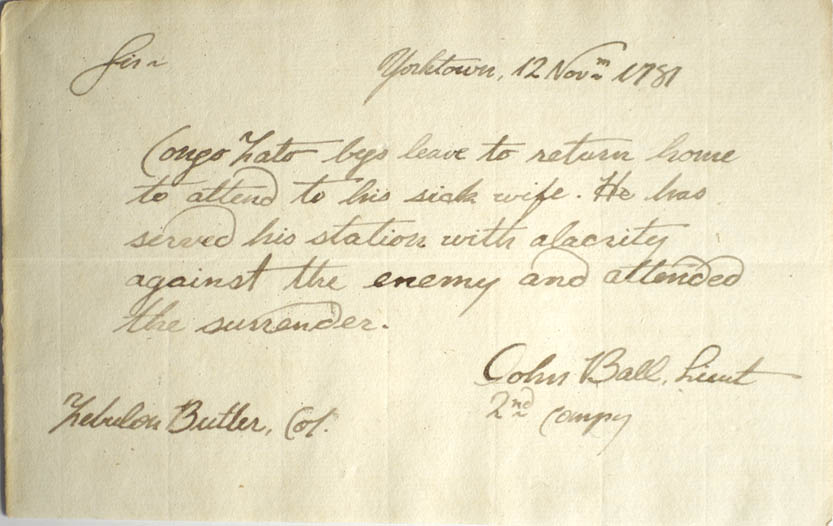 Sir~ Yorktown, 12 Novm 1781
Congo Zato begs leave to return home
to attend to his sick wife. He has
served his station with alacrity
against the enemy and attended
the surrender.
John Ball, Lieut
2nd compy
Zebulon Butler, Col.